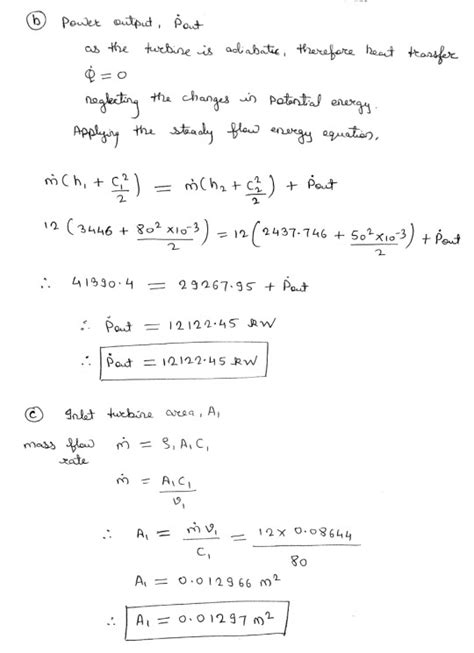 (b) Power output, Ṗout
as the turbine is adiabatic, therefore heat transfer
Q̇ = 0
neglecting the changes in potential energy.
Applying the steady flow energy equation,
ṁ(h₁ + C₁²/2) = ṁ(h₂ + C₂²/2) + Ṗout
12 (3446 + 80² × 10⁻³/2) = 12 (2437.746 + 50² × 10⁻³/2) + Ṗout
∴ 41390.4 = 29267.95 + Ṗout
∴ Ṗout = 12122.45 kW
∴ Ṗout = 12122.45 kW
(c) Inlet turbine area, A₁
mass flow rate ṁ = ρ₁ A₁ C₁
ṁ = A₁C₁/v₁
∴ A₁ = ṁ v₁/C₁ = 12 × 0.08644/80
A₁ = 0.012966 m²
∴ A₁ = 0.01297 m²